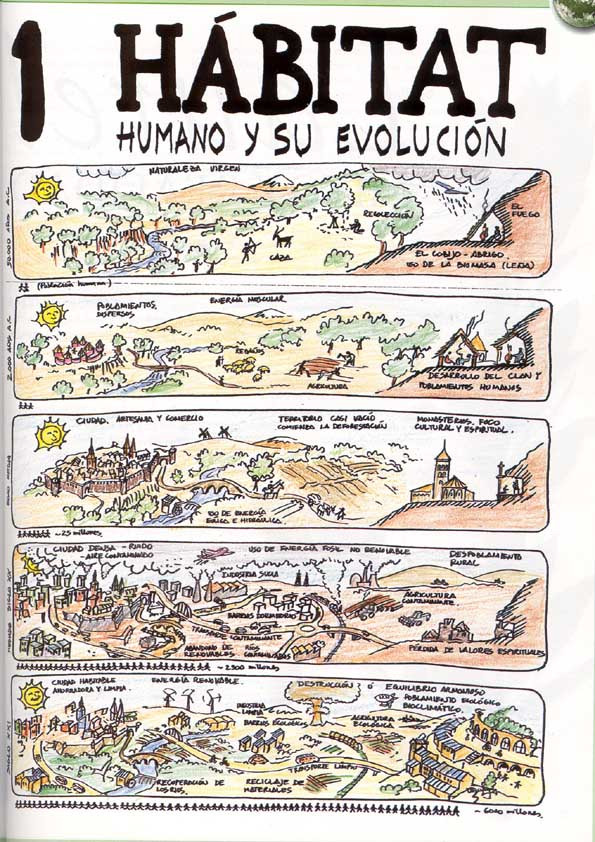 1
HÁBITAT
HUMANO Y SU EVOLUCIÓN
50.000 AÑOS A.C.
NATURALEZA VIRGEN
RECOLECCIÓN
CAZA
EL
FUEGO
EL COBIJO - ABRIGO
USO DE LA BIOMASA (LEÑA)
(Población humana)
2.000 AÑOS A.C.
POBLAMIENTOS
DISPERSOS
ENERGÍA MUSCULAR
REBAÑOS
AGRICULTURA
DESARROLLO DEL CLAN Y
POBLAMIENTOS HUMANOS
EDAD MEDIA
CIUDAD, ARTESANIA Y COMERCIO
TERRITORIO CASI VACÍO
COMIENZA LA DEFORESTACIÓN
MONASTERIOS, FOCO
CULTURAL Y ESPIRITUAL.
USO DE ENERGÍA
EOLICA E HIDRAÚLICA
~25 millones.
SIGLO XX
CIUDAD DENSA - RUIDO
- AIRE CONTAMINADO
USO DE ENERGÍA FOSIL NO RENOVABLE
DESPOBLAMIENTO
RURAL
INDUSTRIA SUCIA
BARRIOS DORMITORIO
AGRICULTURA
CONTAMINANTE
TRANSPORTE CONTAMINANTE
ABANDONO DE RÍOS
RENOVABLES CONTAMINADOS
PÉRDIDA DE VALORES ESPIRITUALES
~ 2300 millones
SIGLO XXI
CIUDAD HABITABLE
AHORRADORA Y LIMPIA
ENERGÍA RENOVABLE.
DESTRUCCIÓN Ó EQUILIBRIO ARMONIOSO
POBLAMIENTO ECOLÓGICO
BIOCLIMÁTICO
INDUSTRIA
LIMPIA
BARRIOS ECOLÓGICOS
AGRICULTURA
ECOLÓGICA
TRANSPORTE LIMPIO
RECUPERACIÓN DE
LOS RÍOS.
RECICLAJE DE
MATERIALES
~ 6000 millones.